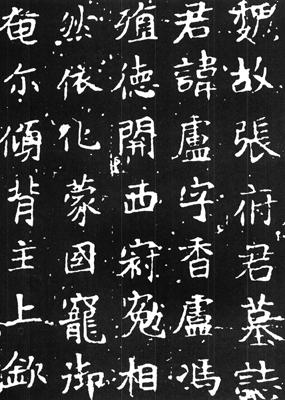 魏故張府君墓誌
君諱盧字香盧馮
殖德開西勉相
然依化蒙國寵御
奄尔傾背主上欽